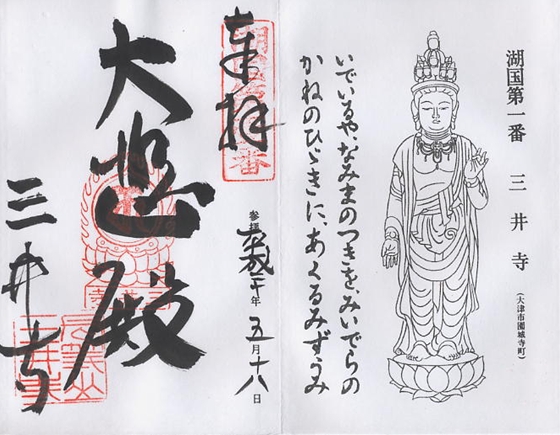 湖国第一番 三井寺
(大津市園城寺町)
いでいるやなみまのつきを、みいでらの
かねのひゞきに、あくるみずうみ
奉拝
参拝 平成二十年 五月十八日
大悲殿
三井寺